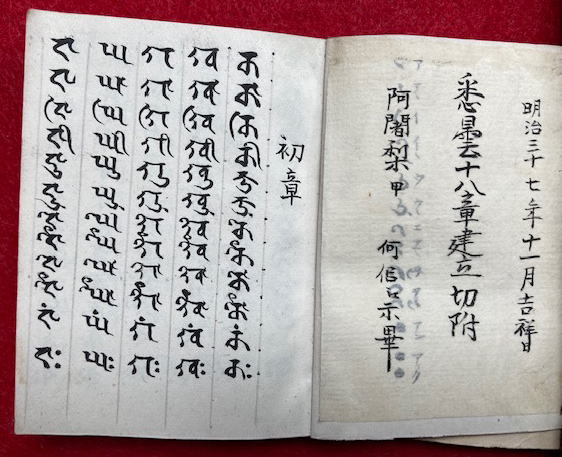 明治三十七年十一月吉祥日
悉曇十八章建立切附
阿闍梨甲 何信示畢
初章
𑖎 𑖎𑖯 𑖎𑖰 𑖎𑖱 𑖎𑖲 𑖎𑖳 𑖎𑖸 𑖎𑖹 𑖎𑖺 𑖎𑖻 𑖎𑖽 𑖎𑖾
𑖏 𑖏𑖯 𑖏𑖰 𑖏𑖱 𑖏𑖲 𑖏𑖳 𑖏𑖸 𑖏𑖹 𑖏𑖺 𑖏𑖻 𑖏𑖽 𑖏𑖾
𑖐 𑖐𑖯 𑖐𑖰 𑖐𑖱 𑖐𑖲 𑖐𑖳 𑖐𑖸 𑖐𑖹 𑖐𑖺 𑖐𑖻 𑖐𑖽 𑖐𑖾
𑖑 𑖑𑖯 𑖑𑖰 𑖑𑖱 𑖑𑖲 𑖑𑖳 𑖑𑖸 𑖑𑖹 𑖑𑖺 𑖑𑖻 𑖑𑖽 𑖑𑖾
𑖒 𑖒𑖯 𑖒𑖰 𑖒𑖱 𑖒𑖲 𑖒𑖳 𑖒𑖸 𑖒𑖹 𑖒𑖺 𑖒𑖻 𑖒𑖽 𑖒𑖾